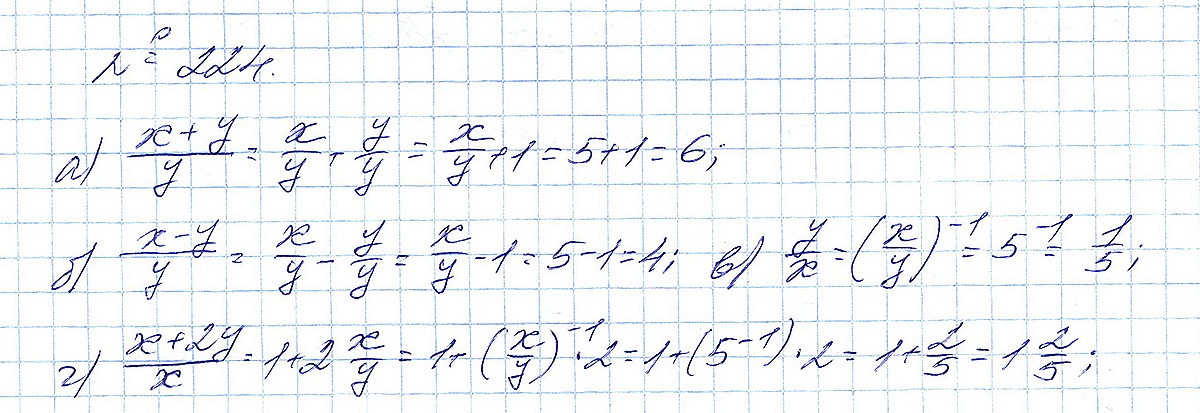 № 224.
а) (x+y)/y = x/y + y/y = x/y + 1 = 5+1 = 6;
б) (x-y)/y = x/y - y/y = x/y - 1 = 5-1 = 4; в) y/x = (x/y)^-1 = 5^-1 = 1/5;
г) (x+2y)/x = 1+2 x/y = 1+(x/y)^-1 · 2 = 1+(5^-1) · 2 = 1+ 2/5 = 1 2/5;